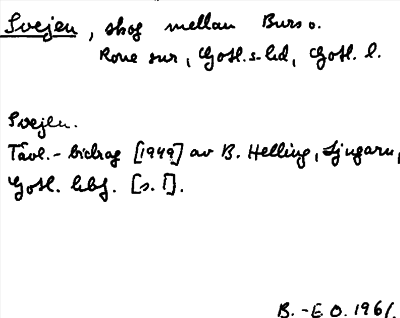 Svejen, skog mellan Burs o.
Rone snr, Gotl. s. hd, Gotl. l.
Svejen.
Tävl.-bidrag [1949] av B. Helling, Ljugarn,
Gotl. hbf. [s. 1].
B.-E O. 1961.